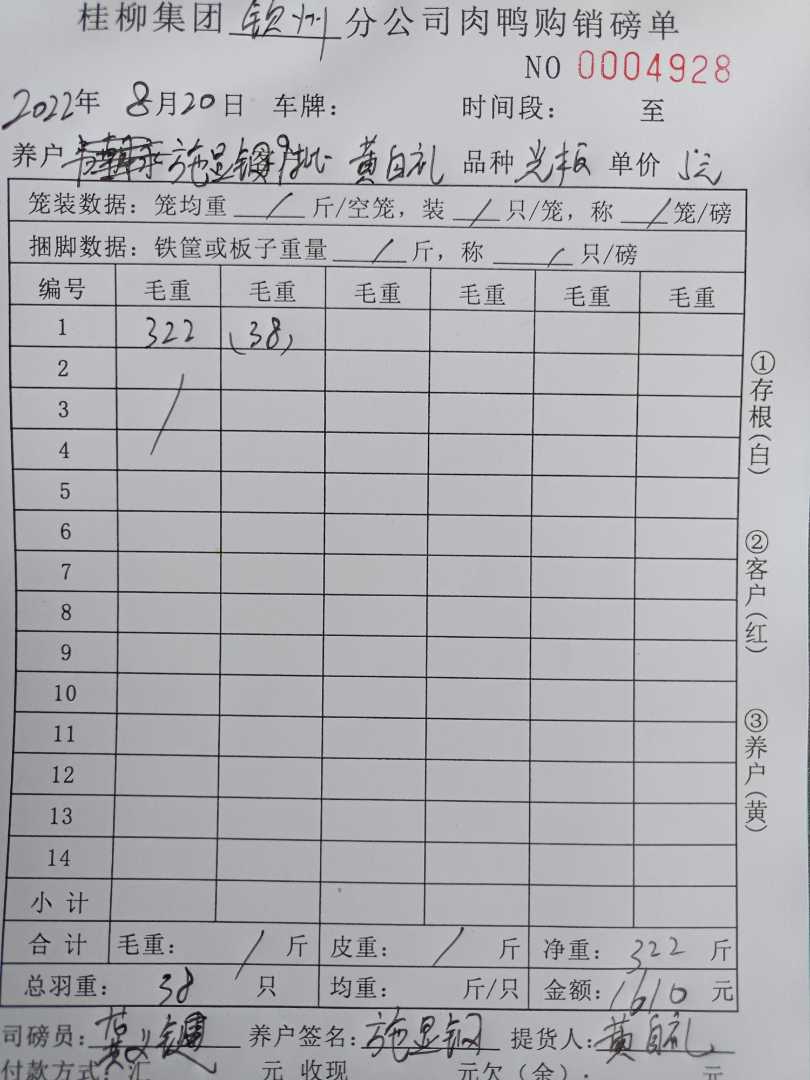 桂柳集团 钦州 分公司肉鸭购销磅单
NO 0004928
2022年 8月20日 车牌: 时间段: 至
养户 施显钢 9批 黄自礼 品种 光板 单价 5元
笼装数据: 笼均重 / 斤/空笼, 装 / 只/笼, 称 / 笼/磅
捆脚数据: 铁筐或板子重量 / 斤, 称 / 只/磅
编号 毛重 毛重 毛重 毛重 毛重 毛重
1 322 (38)
2
3 /
4
5
6
7
8
9
10
11
12
13
14
小计
合计 毛重: / 斤 皮重: / 斤 净重: 322 斤
总羽重: 38 只 均重: 斤/只 金额: 1610 元
司磅员: 养户签名: 施显钢 提货人: 黄自礼
付款方式: 汇 元 收现 元欠(余): 元
①存根(白)
②客户(红)
③养户(黄)